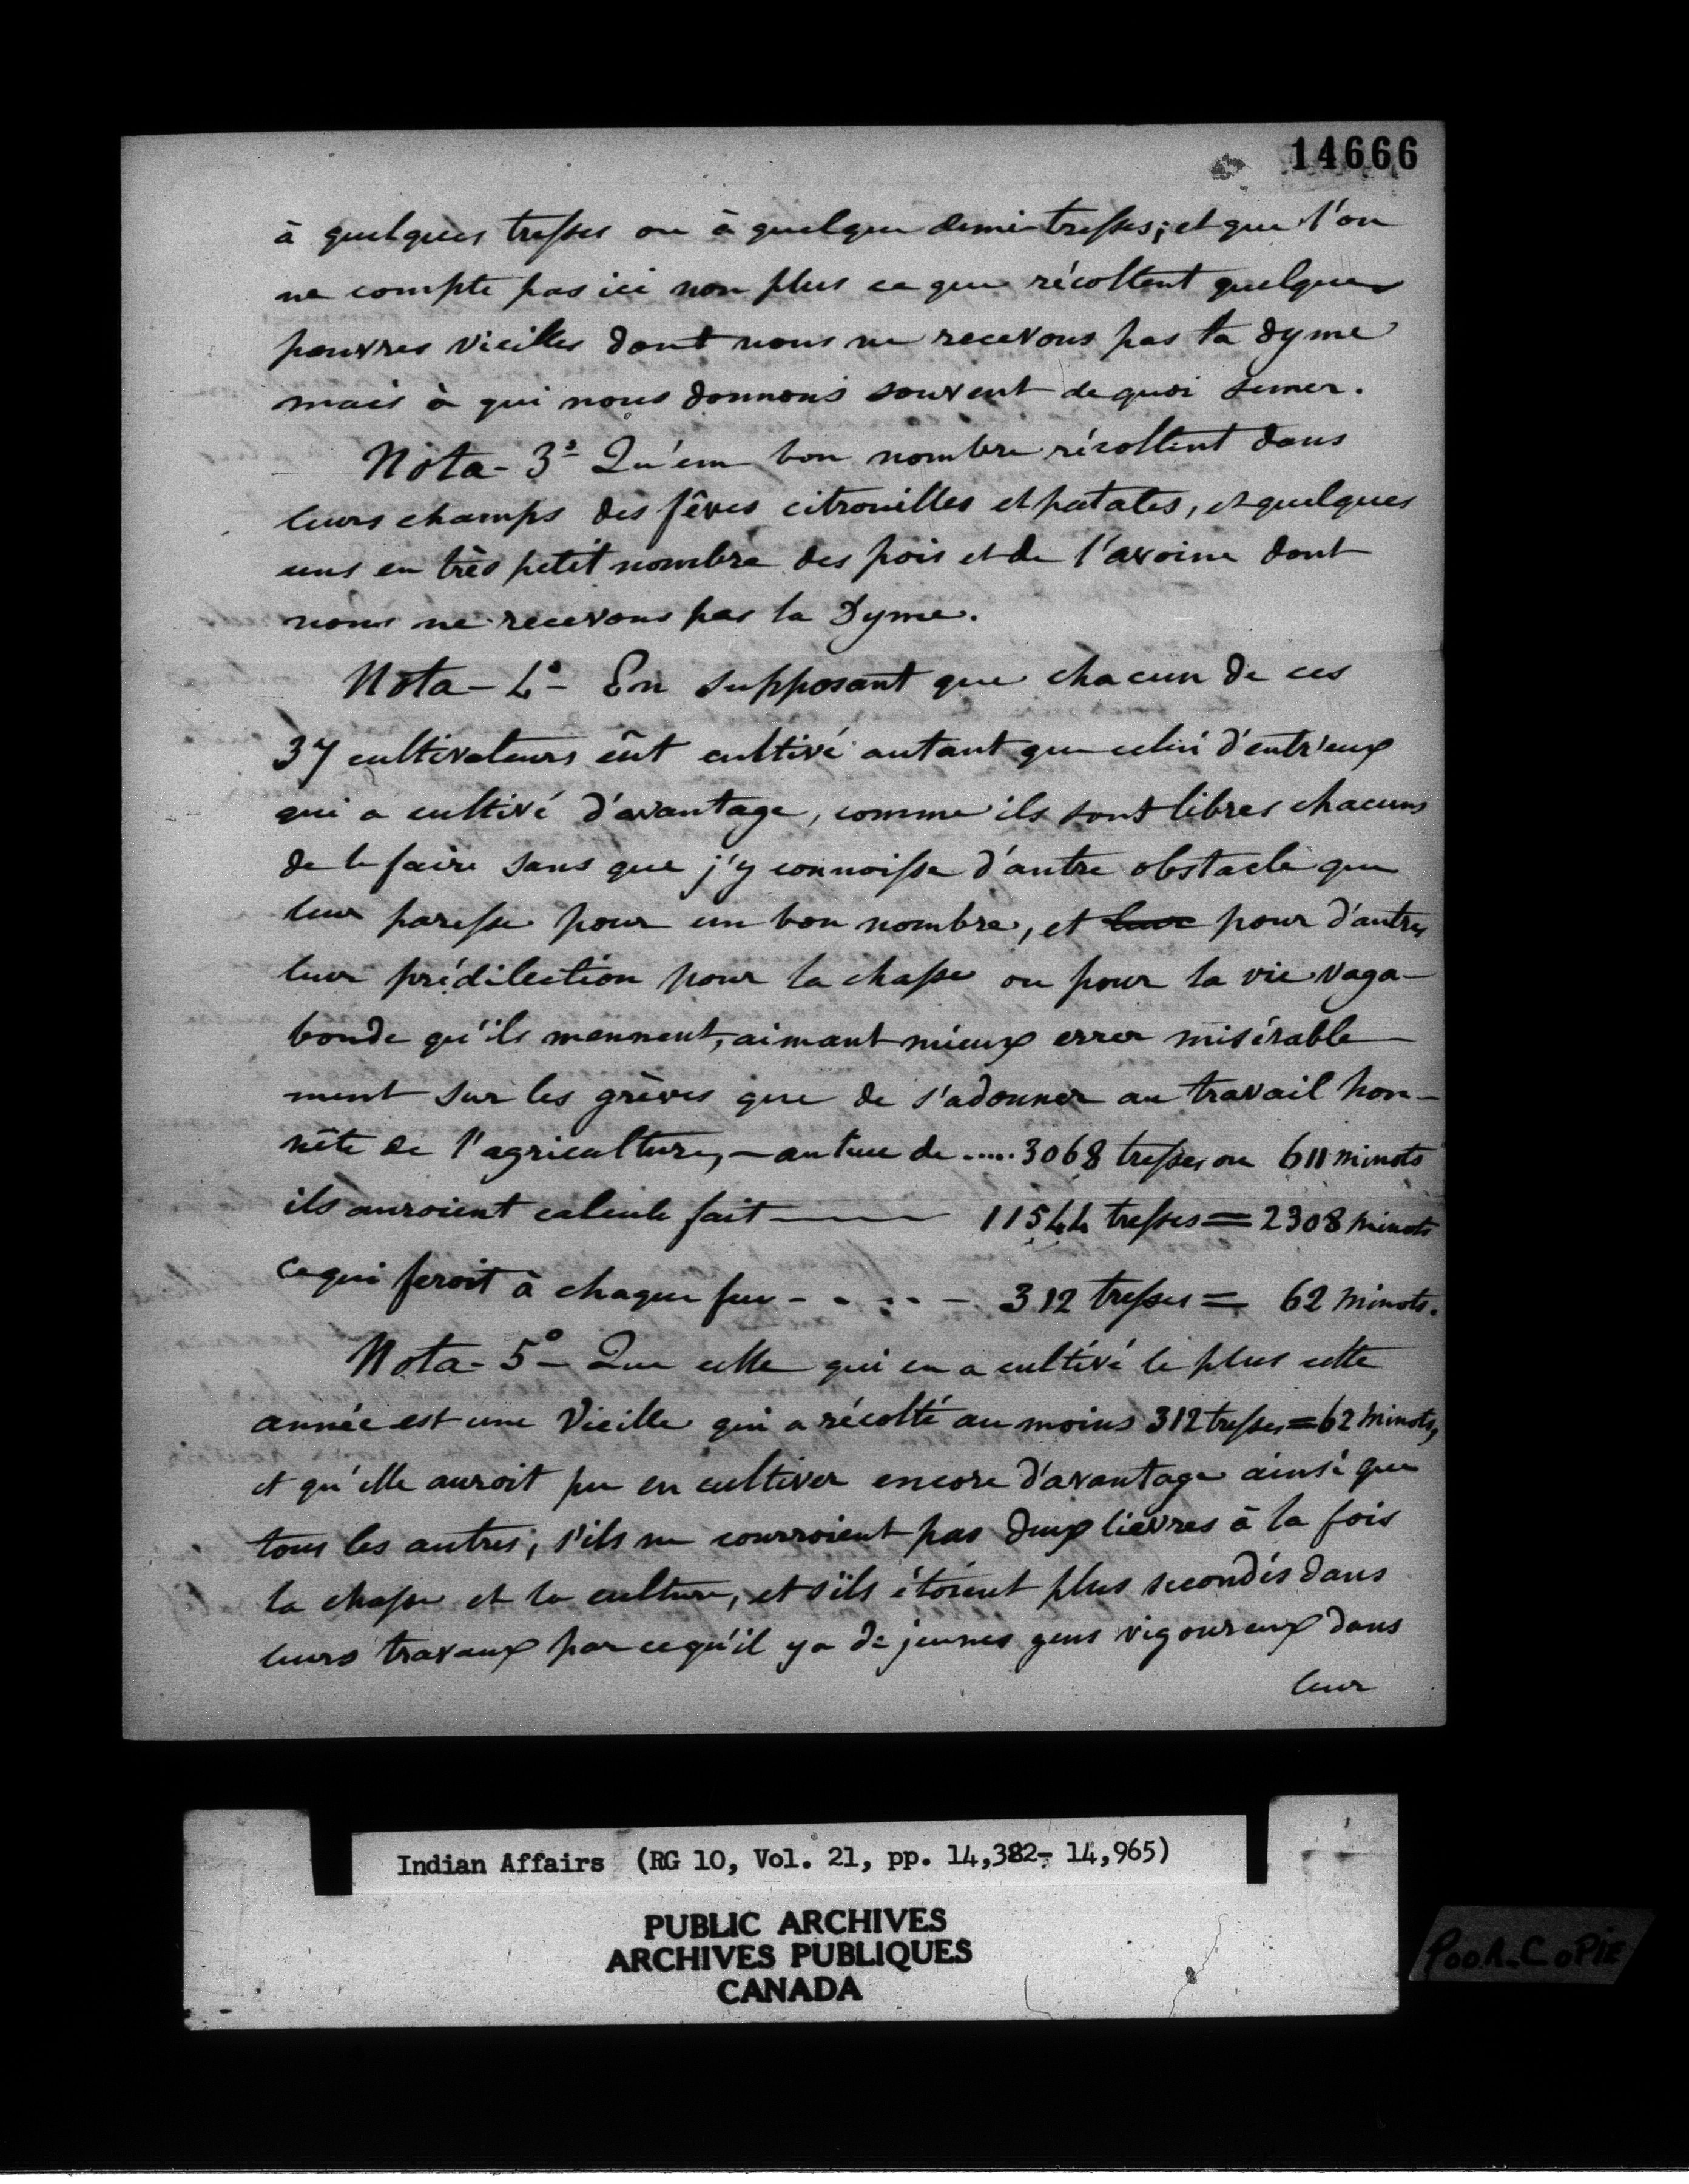 14666
à quelques tresses ou à quelques demi-tresses; et que l'on
ne compte pas ici non plus ce que récoltent quelques
pauvres vieilles dont nous ne recevons pas la dyme
mais à qui nous donnons souvent de quoi semer.
Nota - 3° Qu'un bon nombre récoltent dans
leurs champs des fêves citrouilles et patates, et quelques
uns en très petit nombre des pois et de l'avoine dont
nous ne recevons pas la Dyme.
Nota - 4° - En supposant que chacun de ces
37 cultivateurs eût cultivé autant que celui d'entr'eux
qui a cultivé d'avantage, comme ils sont libres chacuns
de le faire sans que j'y connoisse d'autre obstacle que
leur paresse pour un bon nombre, et leur pour d'autres
leur prédilection pour la chasse ou pour la vie vaga-
bonde qu'ils mennent, aimant mieux errer misérable-
ment sur les grèves que de s'adonner au travail hon-
nête de l'agriculture, - au lieu de ..... 3068 tresses ou 611 minots
ils auroient calcule fait ——— 11544 tresses = 2308 minots
ce qui feroit à chaque feu - - - - - 312 tresses = 62 minots.
Nota - 5° - Que celle qui en a cultivé le plus cette
année est une Vieille qui a récolté au moins 312 tresses = 62 minots,
et qu'elle auroit pu en cultiver encore d'avantage ainsi que
tous les autres; s'ils ne courroient pas deux lièvres à la fois
la chasse et la culture, et s'ils étoient plus secondés dans
leurs travaux par ce qu'il y a de jeunes gens vigoureux dans
leur
Indian Affairs (RG 10, Vol. 21, pp. 14,382- 14,965)
PUBLIC ARCHIVES
ARCHIVES PUBLIQUES
CANADA
POOR COPIE